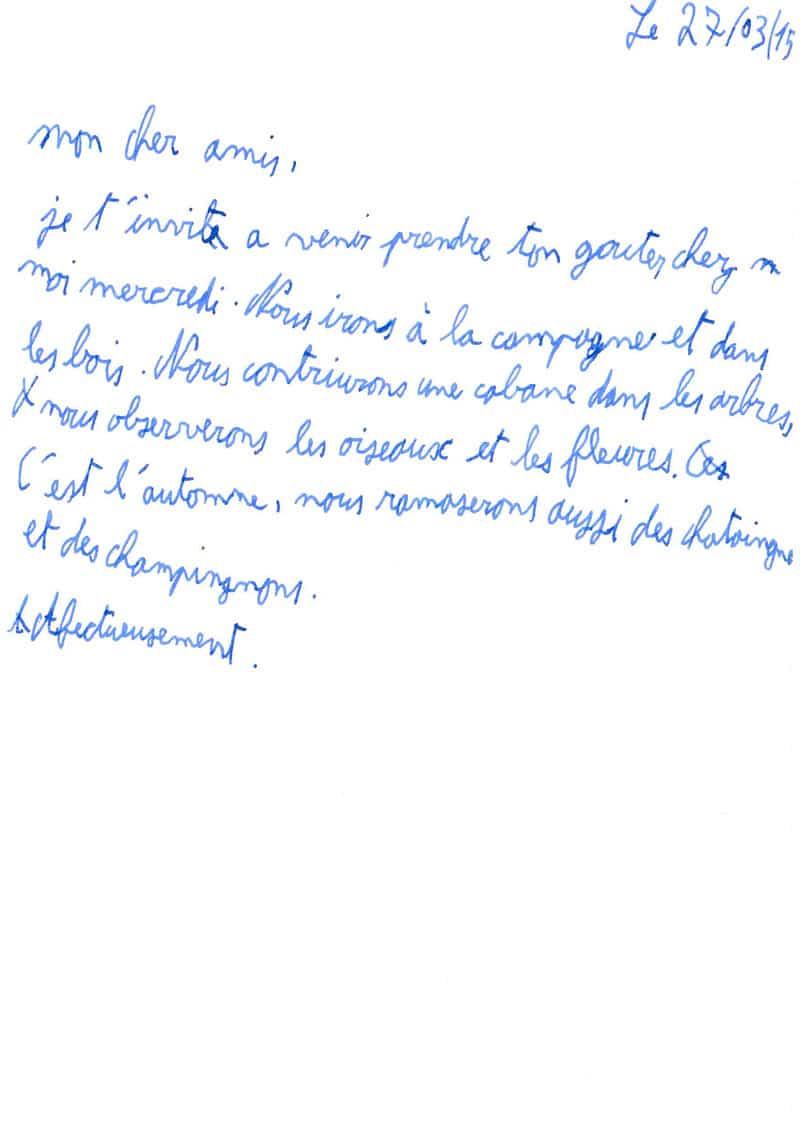 Le 27/03/15
mon cher amis,
je t'invite a venir prendre ton gouter, chez m
moi mercredi. Nous irons à la campagne et dans
les bois. Nous contriurons une cabane dans les arbres,
nous observerons les oiseaux et les fleures. Ces
C'est l'automne, nous ramaserons aussi des chataingne
et des champingnons.
Afectueusement.